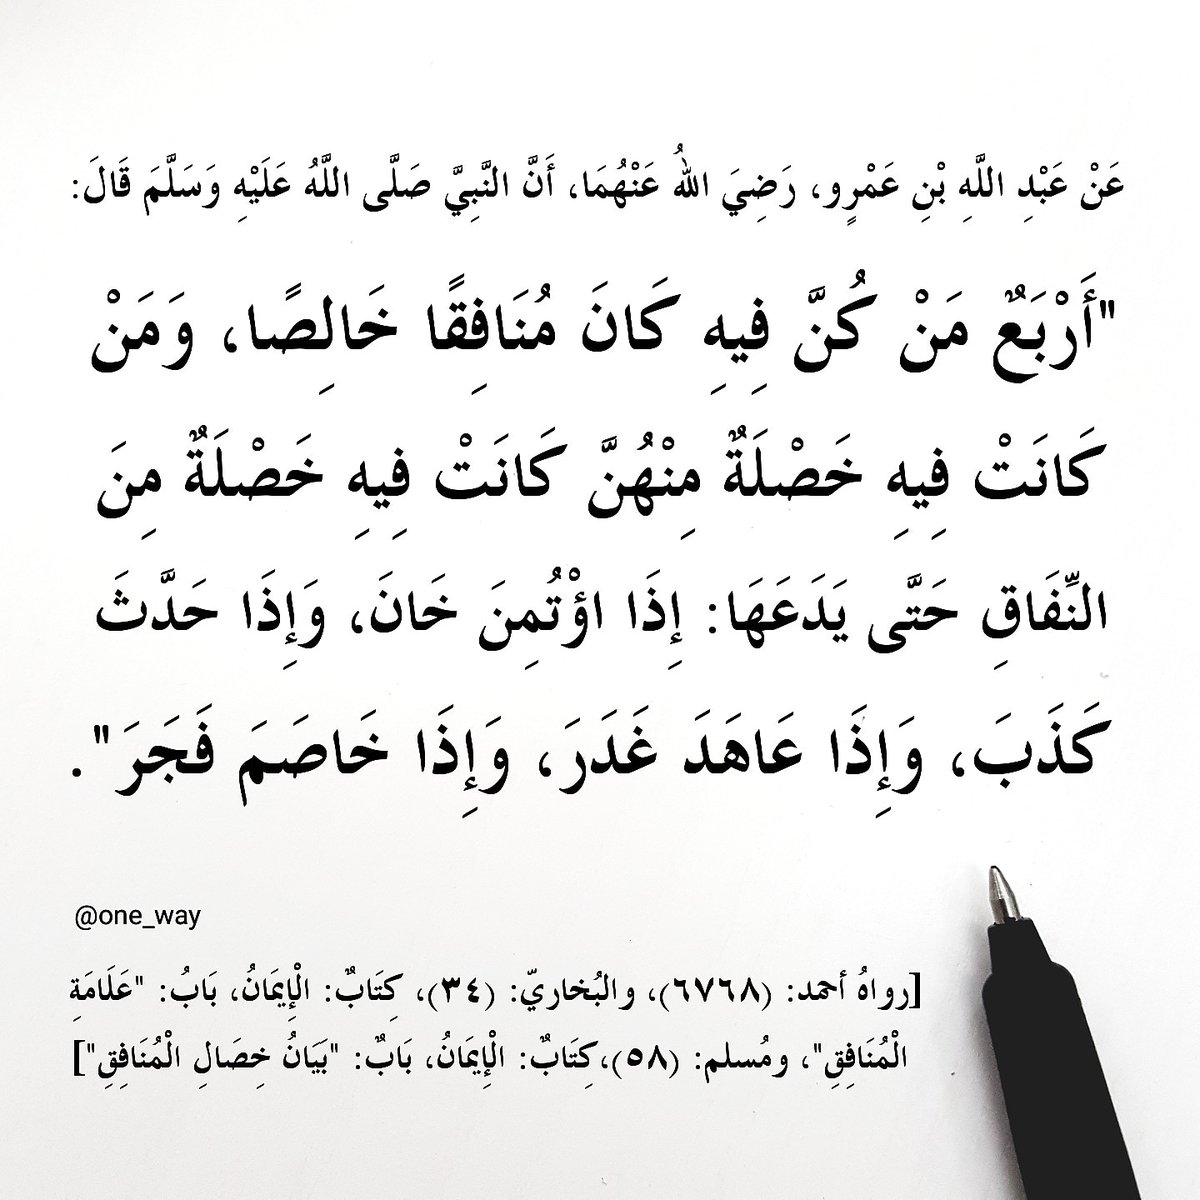 عَنْ عَبْدِ اللَّهِ بْنِ عَمْرٍو، رَضِيَ اللهُ عَنْهُمَا، أَنَّ النَّبِيَّ صَلَّى اللَّهُ عَلَيْهِ وَسَلَّمَ قَالَ:
"أَرْبَعٌ مَنْ كُنَّ فِيهِ كَانَ مُنَافِقًا خَالِصًا، وَمَنْ
كَانَتْ فِيهِ خَصْلَةٌ مِنْهُنَّ كَانَتْ فِيهِ خَصْلَةٌ مِنَ
النِّفَاقِ حَتَّى يَدَعَهَا: إِذَا اؤْتُمِنَ خَانَ، وَإِذَا حَدَّثَ
كَذَبَ، وَإِذَا عَاهَدَ غَدَرَ، وَإِذَا خَاصَمَ فَجَرَ".
@one_way
[رواهُ أحمد: (٦٧٦٨)، والبُخاريّ: (٣٤)، كِتَابٌ: الْإِيمَانُ، بَابُ: "عَلَامَةِ
الْمُنَافِقِ"، ومُسلم: (٥٨)،كِتَابٌ: الْإِيمَانُ، بَابٌ: "بَيَانُ خِصَالِ الْمُنَافِقِ"]